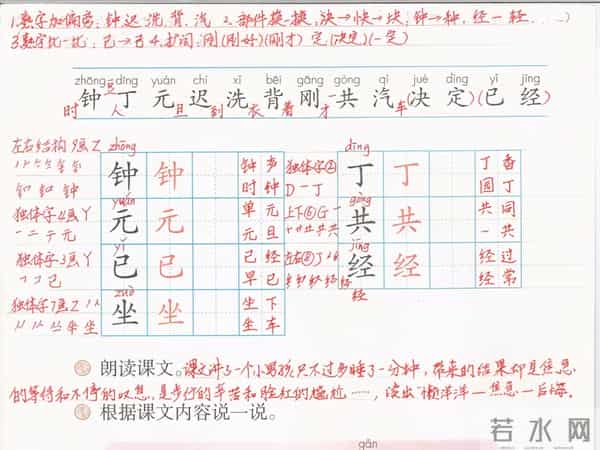 1.熟字加偏旁:钟 迟 洗 背 汽 2.部件换一换,决→快→块;钟→种,经→轻……)
3.熟字比一比:已→己 4.扩词:刚(刚好)(刚才) 定(决定)(一定)
zhōng dīng yuán chí xǐ bēi gāng gòng qì jué dìng yǐ jīng
钟 丁 元 迟 洗 背 刚 共 汽(决 定)(已 经)
时 人 旦 到 衣 着 才 一 车
左右结构 9画 Z
zhōng
钟 钟
钟
时钟
钅 钟
dīng
独体字②
D 一丁
丁 丁
丁香
园丁
独体字4画Y
一 二 テ 元
yuán
元 元
单元
元旦
上下⑥G
gòng
共 共
共同
一共
独体字3画Y
㇕ コ 已
yǐ
已 已
已经
早已
左右⑧J
jīng
经 经
经过
经常
经
独体字7画Z
坐 坐
zuò
坐 坐
坐下
坐车
朗读课文。课文讲了一个小男孩只不过多睡了一分钟,带来的结果却是焦急
的等待和不停的叹息,是步行的辛苦和脸红的尴尬……,读出"懒洋洋—焦急—后悔。
根据课文内容说一说。
gān
若水网